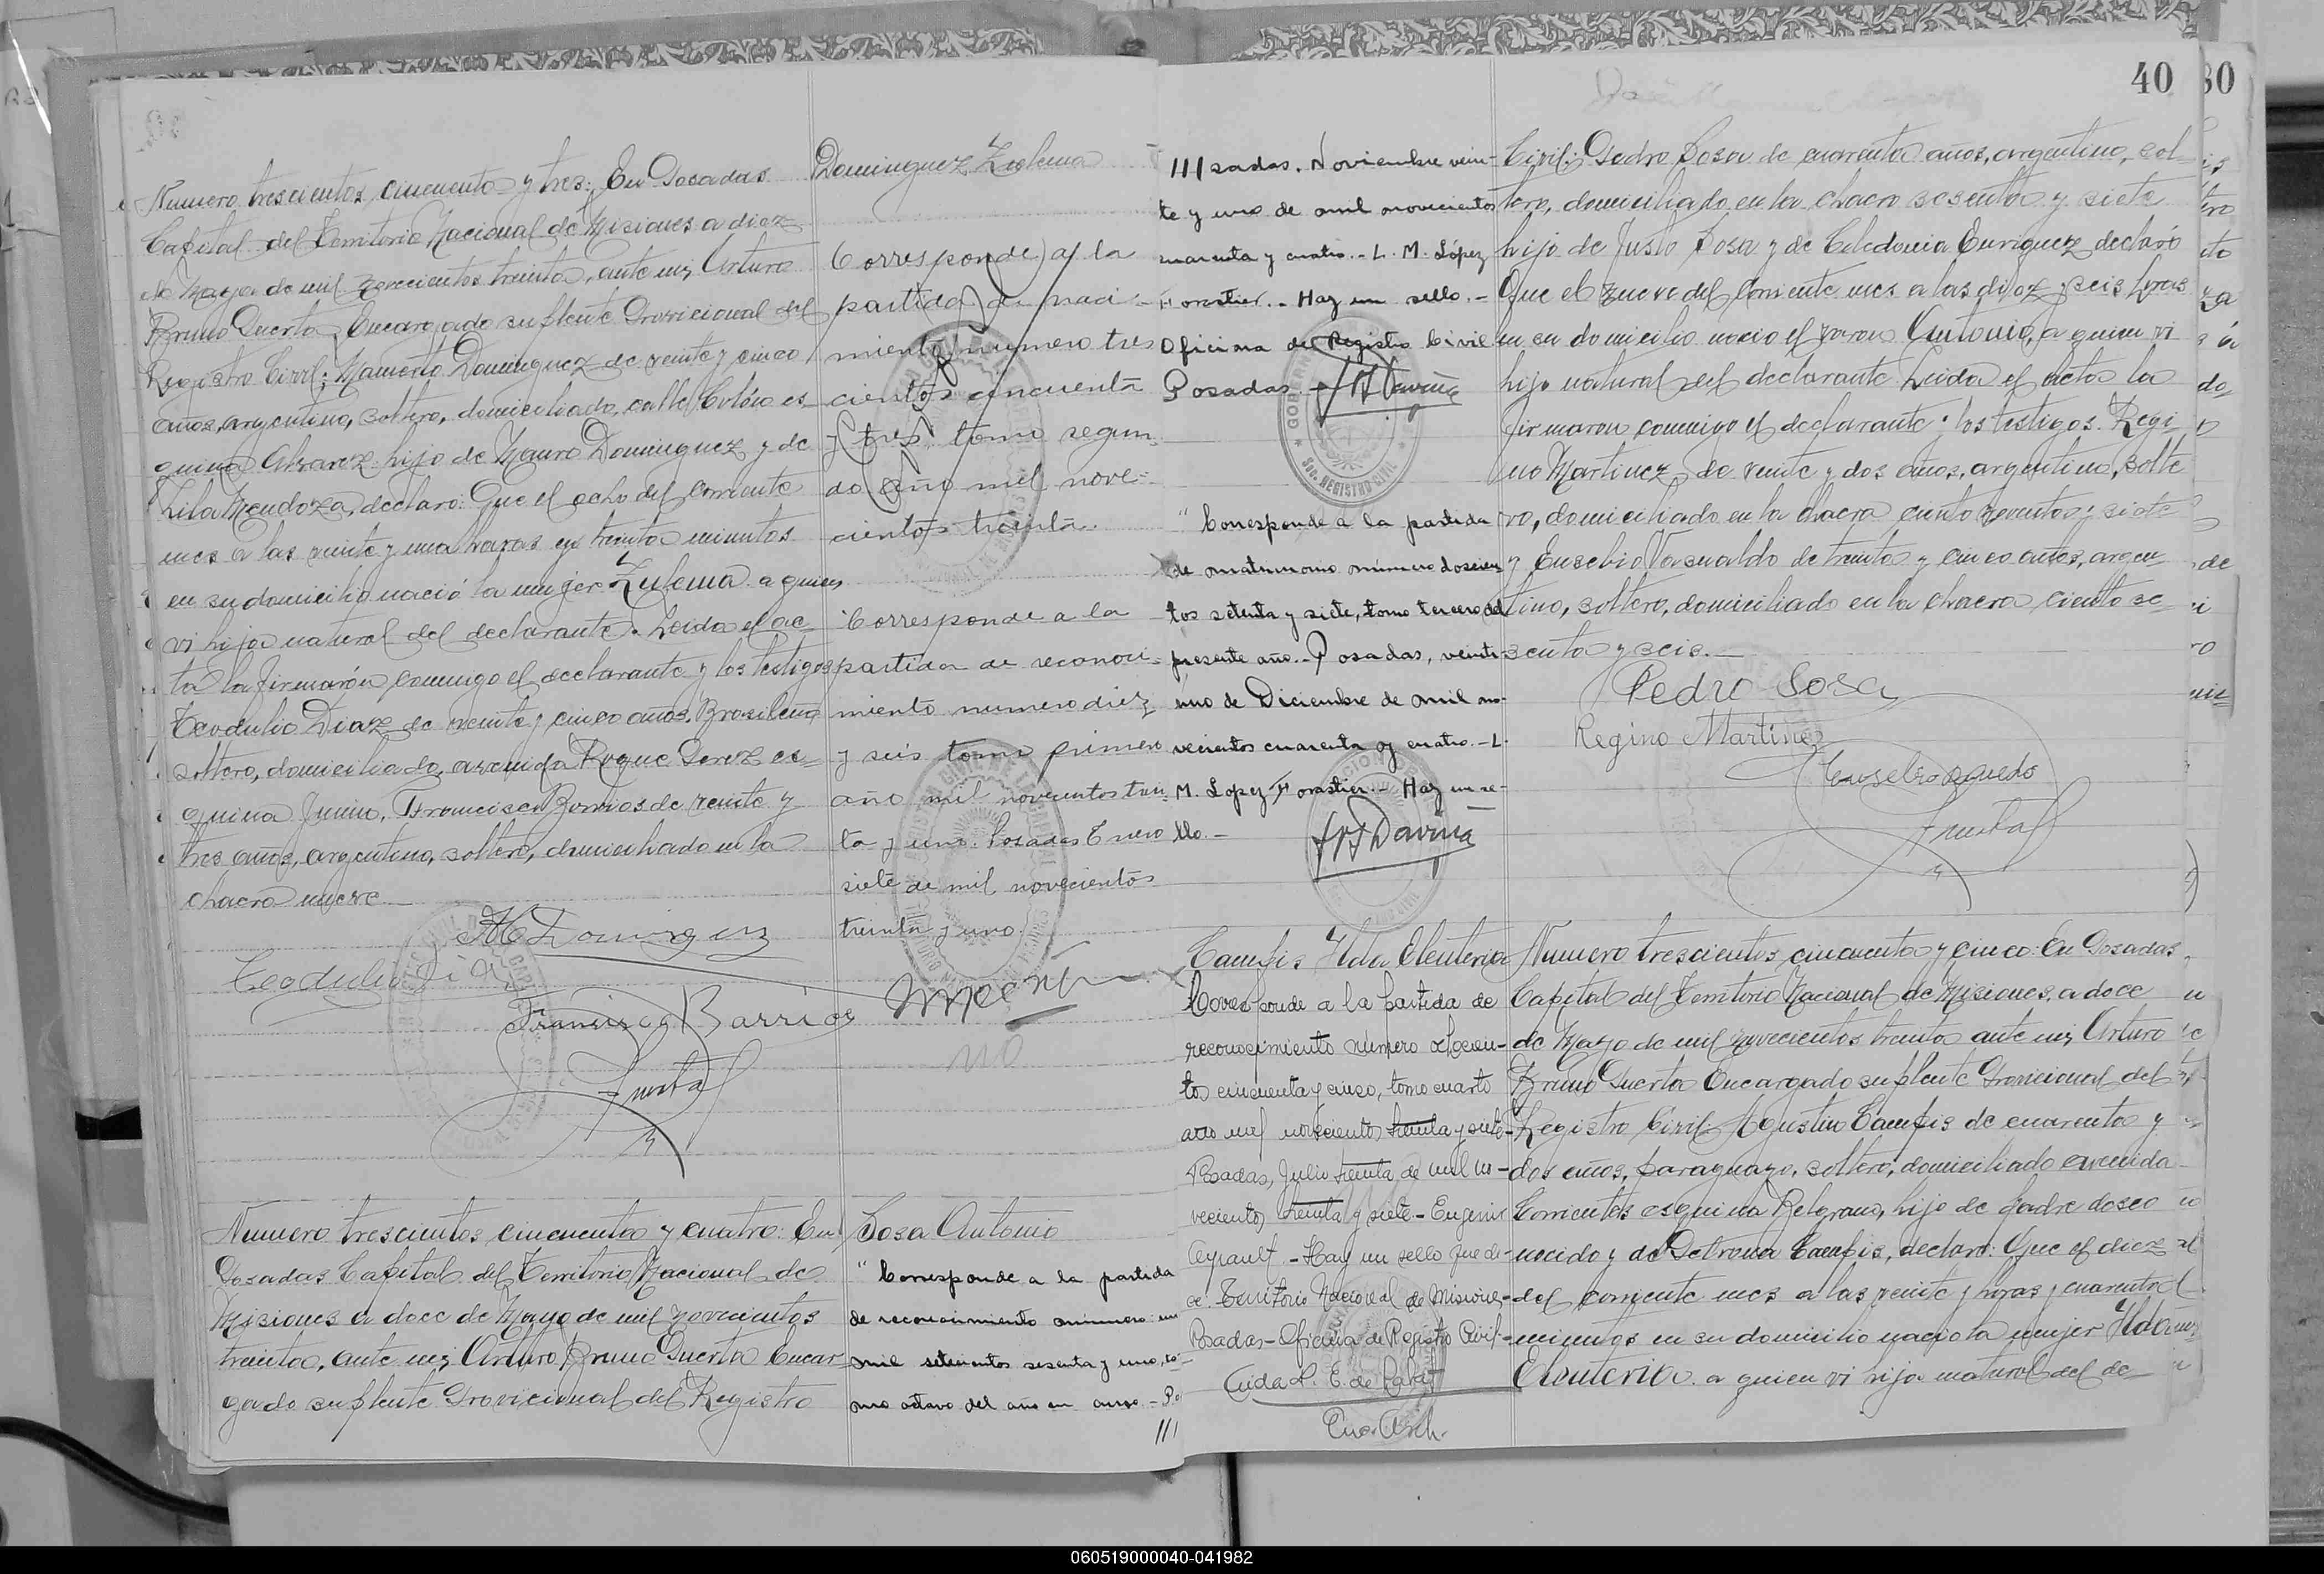 40
Numero trescientos cincuenta y tres: En Posadas
Capital del Territorio Nacional de Misiones a diez
de Mayo de mil novecientos treinta, ante mi, Arturo
Bruno Puerta, Encargado suplente Provicional del
Registro Civil: Mamerto Dominguez de veinte y cinco
años, argentino, soltero, domiciliado, calle Colón es-
quina Alvarez hijo de Mauro Dominguez y de
Lila Mendoza, declaro: Que el ocho del corriente
mes a las veinte y una horas y treinta minutos
en su domicilio nació la mujer Zulema a quien
vi hija natural del declarante. Leida el ac-
ta la firmarón conmigo el declarante y los testigos
Teodulio Diaz de veinte y cinco años, Brasileño
soltero, domiciliado, avenida Roque Perez es-
quina Junin, Francisco Barrios de veinte y
tres años, argentino, soltero, domiciliado en la
chacra nueve
Teodulio Diaz
Francisco Barrios
Numero trescientos cincuenta y cuatro: En
Posadas Capital del Territorio Nacional de
Misiones a doce de Mayo de mil novecientos
treinta, ante mi, Arturo Bruno Puerta Encar-
gado suplente Provicional del Registro
Dominguez Zulema
Corresponde a la
partida de naci-
miento numero tres
cientos cincuenta
y tres tomo segun
do año mil nove-
cientos treinta.
Corresponde a la
partida de reconoci-
miento numero diez
y seis tomo primero
año mil novecientos trein-
ta y uno. Posadas Enero
siete de mil novecientos
treinta y uno.
Sosa Antonio
"Corresponde a la partida
de reconocimiento número: un
mil setecientos sesenta y uno, to-
mo octavo del año en curso - Po
///
///sadas. Noviembre vein-
te y uno de mil novecientos
cuarenta y cuatro.- L. M. López
Forastier.- Hay un sello.-
Oficina del Registro Civil
Posadas.-
"Corresponde a la partida
de matrimonio número doscien
tos setenta y siete, tomo tercero del
presente año.- Posadas, veinti-
uno de Diciembre de mil no-
vecientos cuarenta y cuatro.- L.
M. López Forastier.- Hay un se-
llo.-
Campis Ilda Eleuteria
Corresponde a la partida de
reconocimiento número doscien-
tos cincuenta y cinco, tomo cuarto
año mil novecientos treinta y siete-
Posadas, Julio treinta de mil no-
vecientos treinta y siete- Eugenio
Ayrault - Hay un sello que di-
ce: Territorio Nacional de Misiones-
Posadas- Oficina de Registro Civil-
Civil: Pedro Sosa de cuarenta años, argentino, sol-
tero, domiciliado en la chacra sesenta y siete
hijo de Justo Sosa y de Celedonia Enriquez declaró
Que el nueve del corriente mes a las diez y seis horas
en su domicilio nacio el varon Antonio, a quien vi
hijo natural del declarante Leida el acta la
firmaron conmigo el declarante y los testigos Regi-
no Martinez de veinte y dos años, argentino, solte
ro, domiciliado en la chacra ciento noventa y siete
y Eusebio Vasualdo de treinta y cinco años, argen-
tino, soltero, domiciliado en la chacra ciento se-
senta y seis.-
Pedro Sosa
Regino Martinez
Numero trescientos cincuenta y cinco: En Posadas
Capital del Territorio Nacional de Misiones, a doce
de Mayo de mil novecientos treinta ante mi, Arturo
Bruno Puerta Encargado suplente Provicional del
Registro Civil: Agustin Campis de cuarenta y
dos años, paraguayo, soltero, domiciliado avenida
Corrientes esquina Belgrano, hijo de padre desco
nocido y de Petrona Campis, declaro: Que el diez
del corriente mes a las veinte y horas y cuarenta
minutos en su domicilio nacio la mujer Ilda
Eleuteria a quien vi hija natural del de-
060519000040-041982